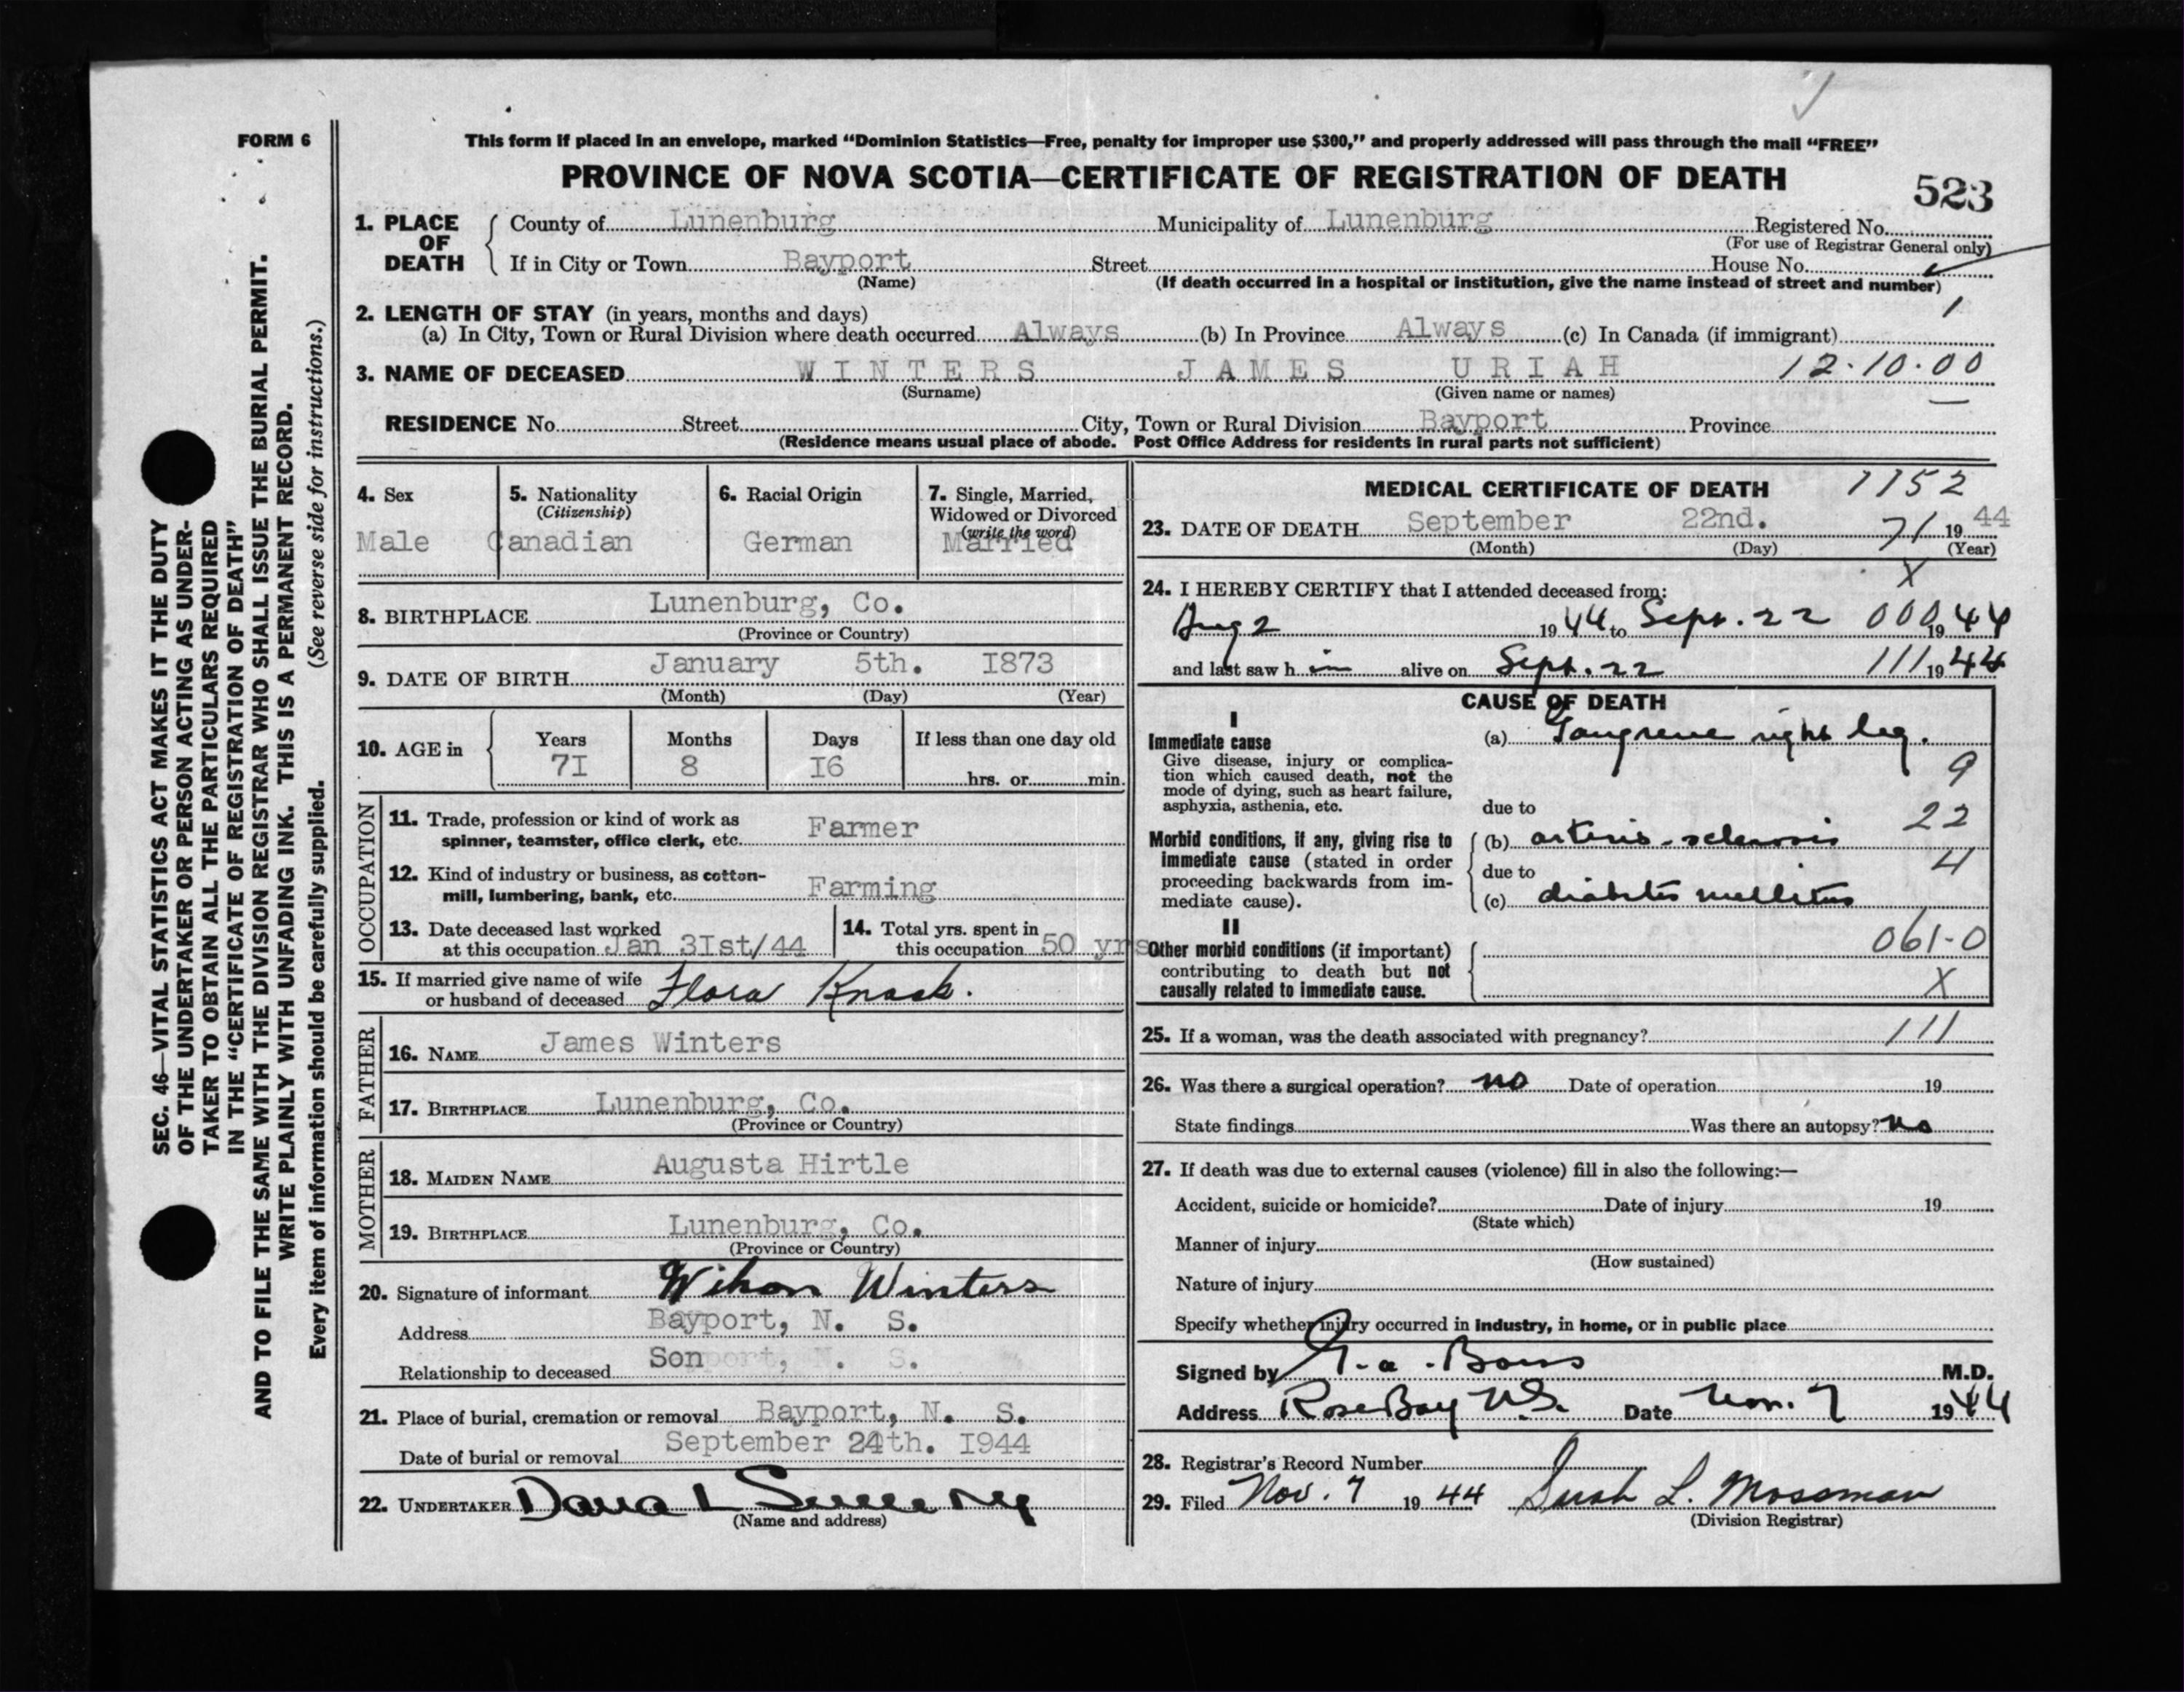 FORM 6
This form if placed in an envelope, marked “Dominion Statistics—Free, penalty for improper use $300,” and properly addressed will pass through the mail “FREE”
PROVINCE OF NOVA SCOTIA—CERTIFICATE OF REGISTRATION OF DEATH
523
1. PLACE OF DEATH
County of Lunenburg Municipality of Lunenburg Registered No.
(For use of Registrar General only)
If in City or Town Bayport Street House No.
(Name) (If death occurred in a hospital or institution, give the name instead of street and number)
2. LENGTH OF STAY (in years, months and days) 1
(a) In City, Town or Rural Division where death occurred Always (b) In Province Always (c) In Canada (if immigrant)
3. NAME OF DECEASED WINTERS JAMES URIAH 12.10.00
(Surname) (Given name or names)
RESIDENCE No. Street City, Town or Rural Division Bayport Province
(Residence means usual place of abode. Post Office Address for residents in rural parts not sufficient)
4. Sex
Male
5. Nationality
(Citizenship)
Canadian
6. Racial Origin
German
7. Single, Married,
Widowed or Divorced
(write the word)
Married
8. BIRTHPLACE Lunenburg, Co.
(Province or Country)
9. DATE OF BIRTH January 5th. I873
(Month) (Day) (Year)
10. AGE in
Years Months Days If less than one day old
7I 8 I6 hrs. or min.
OCCUPATION
11. Trade, profession or kind of work as
spinner, teamster, office clerk, etc. Farmer
12. Kind of industry or business, as cotton-
mill, lumbering, bank, etc. Farming
13. Date deceased last worked
at this occupation Jan 3Ist/44
14. Total yrs. spent in
this occupation 50 yrs
15. If married give name of wife
or husband of deceased Flora Knack.
FATHER
16. NAME James Winters
17. BIRTHPLACE Lunenburg, Co.
(Province or Country)
MOTHER
18. MAIDEN NAME Augusta Hirtle
19. BIRTHPLACE Lunenburg, Co.
(Province or Country)
20. Signature of informant Wilson Winters
Address Bayport, N. S.
Relationship to deceased Son
21. Place of burial, cremation or removal Bayport, N. S.
Date of burial or removal September 24th. I944
22. UNDERTAKER Dana L Sweeny
(Name and address)
MEDICAL CERTIFICATE OF DEATH 1152
23. DATE OF DEATH September 22nd. 71 19 44
(Month) (Day) (Year)
X
24. I HEREBY CERTIFY that I attended deceased from:
Aug 2 19 44 to Sept. 22 000 19 44
and last saw h im alive on Sept. 22 111 19 44
CAUSE OF DEATH
I
Immediate cause
Give disease, injury or complica-
tion which caused death, not the
mode of dying, such as heart failure,
asphyxia, asthenia, etc.
(a) Gangrene right leg.
9
due to
22
Morbid conditions, if any, giving rise to
immediate cause (stated in order
proceeding backwards from im-
mediate cause).
(b) arterio-sclerosis
4
due to
(c) diabetes mellitus
II
Other morbid conditions (if important)
contributing to death but not
causally related to immediate cause.
061-0
X
25. If a woman, was the death associated with pregnancy? 111
26. Was there a surgical operation? no Date of operation 19
State findings Was there an autopsy? no
27. If death was due to external causes (violence) fill in also the following:—
Accident, suicide or homicide? Date of injury 19
(State which)
Manner of injury
(How sustained)
Nature of injury
Specify whether injury occurred in industry, in home, or in public place
Signed by M.D.
Address Rose Bay N.S. Date Nov. 7 1944
28. Registrar's Record Number
29. Filed Nov. 7 19 44 L. Mossman
(Division Registrar)
SEC. 46—VITAL STATISTICS ACT MAKES IT THE DUTY
OF THE UNDERTAKER OR PERSON ACTING AS UNDER-
TAKER TO OBTAIN ALL THE PARTICULARS REQUIRED
IN THE “CERTIFICATE OF REGISTRATION OF DEATH”
AND TO FILE THE SAME WITH THE DIVISION REGISTRAR WHO SHALL ISSUE THE BURIAL PERMIT.
WRITE PLAINLY WITH UNFADING INK. THIS IS A PERMANENT RECORD.
Every item of information should be carefully supplied. (See reverse side for instructions.)